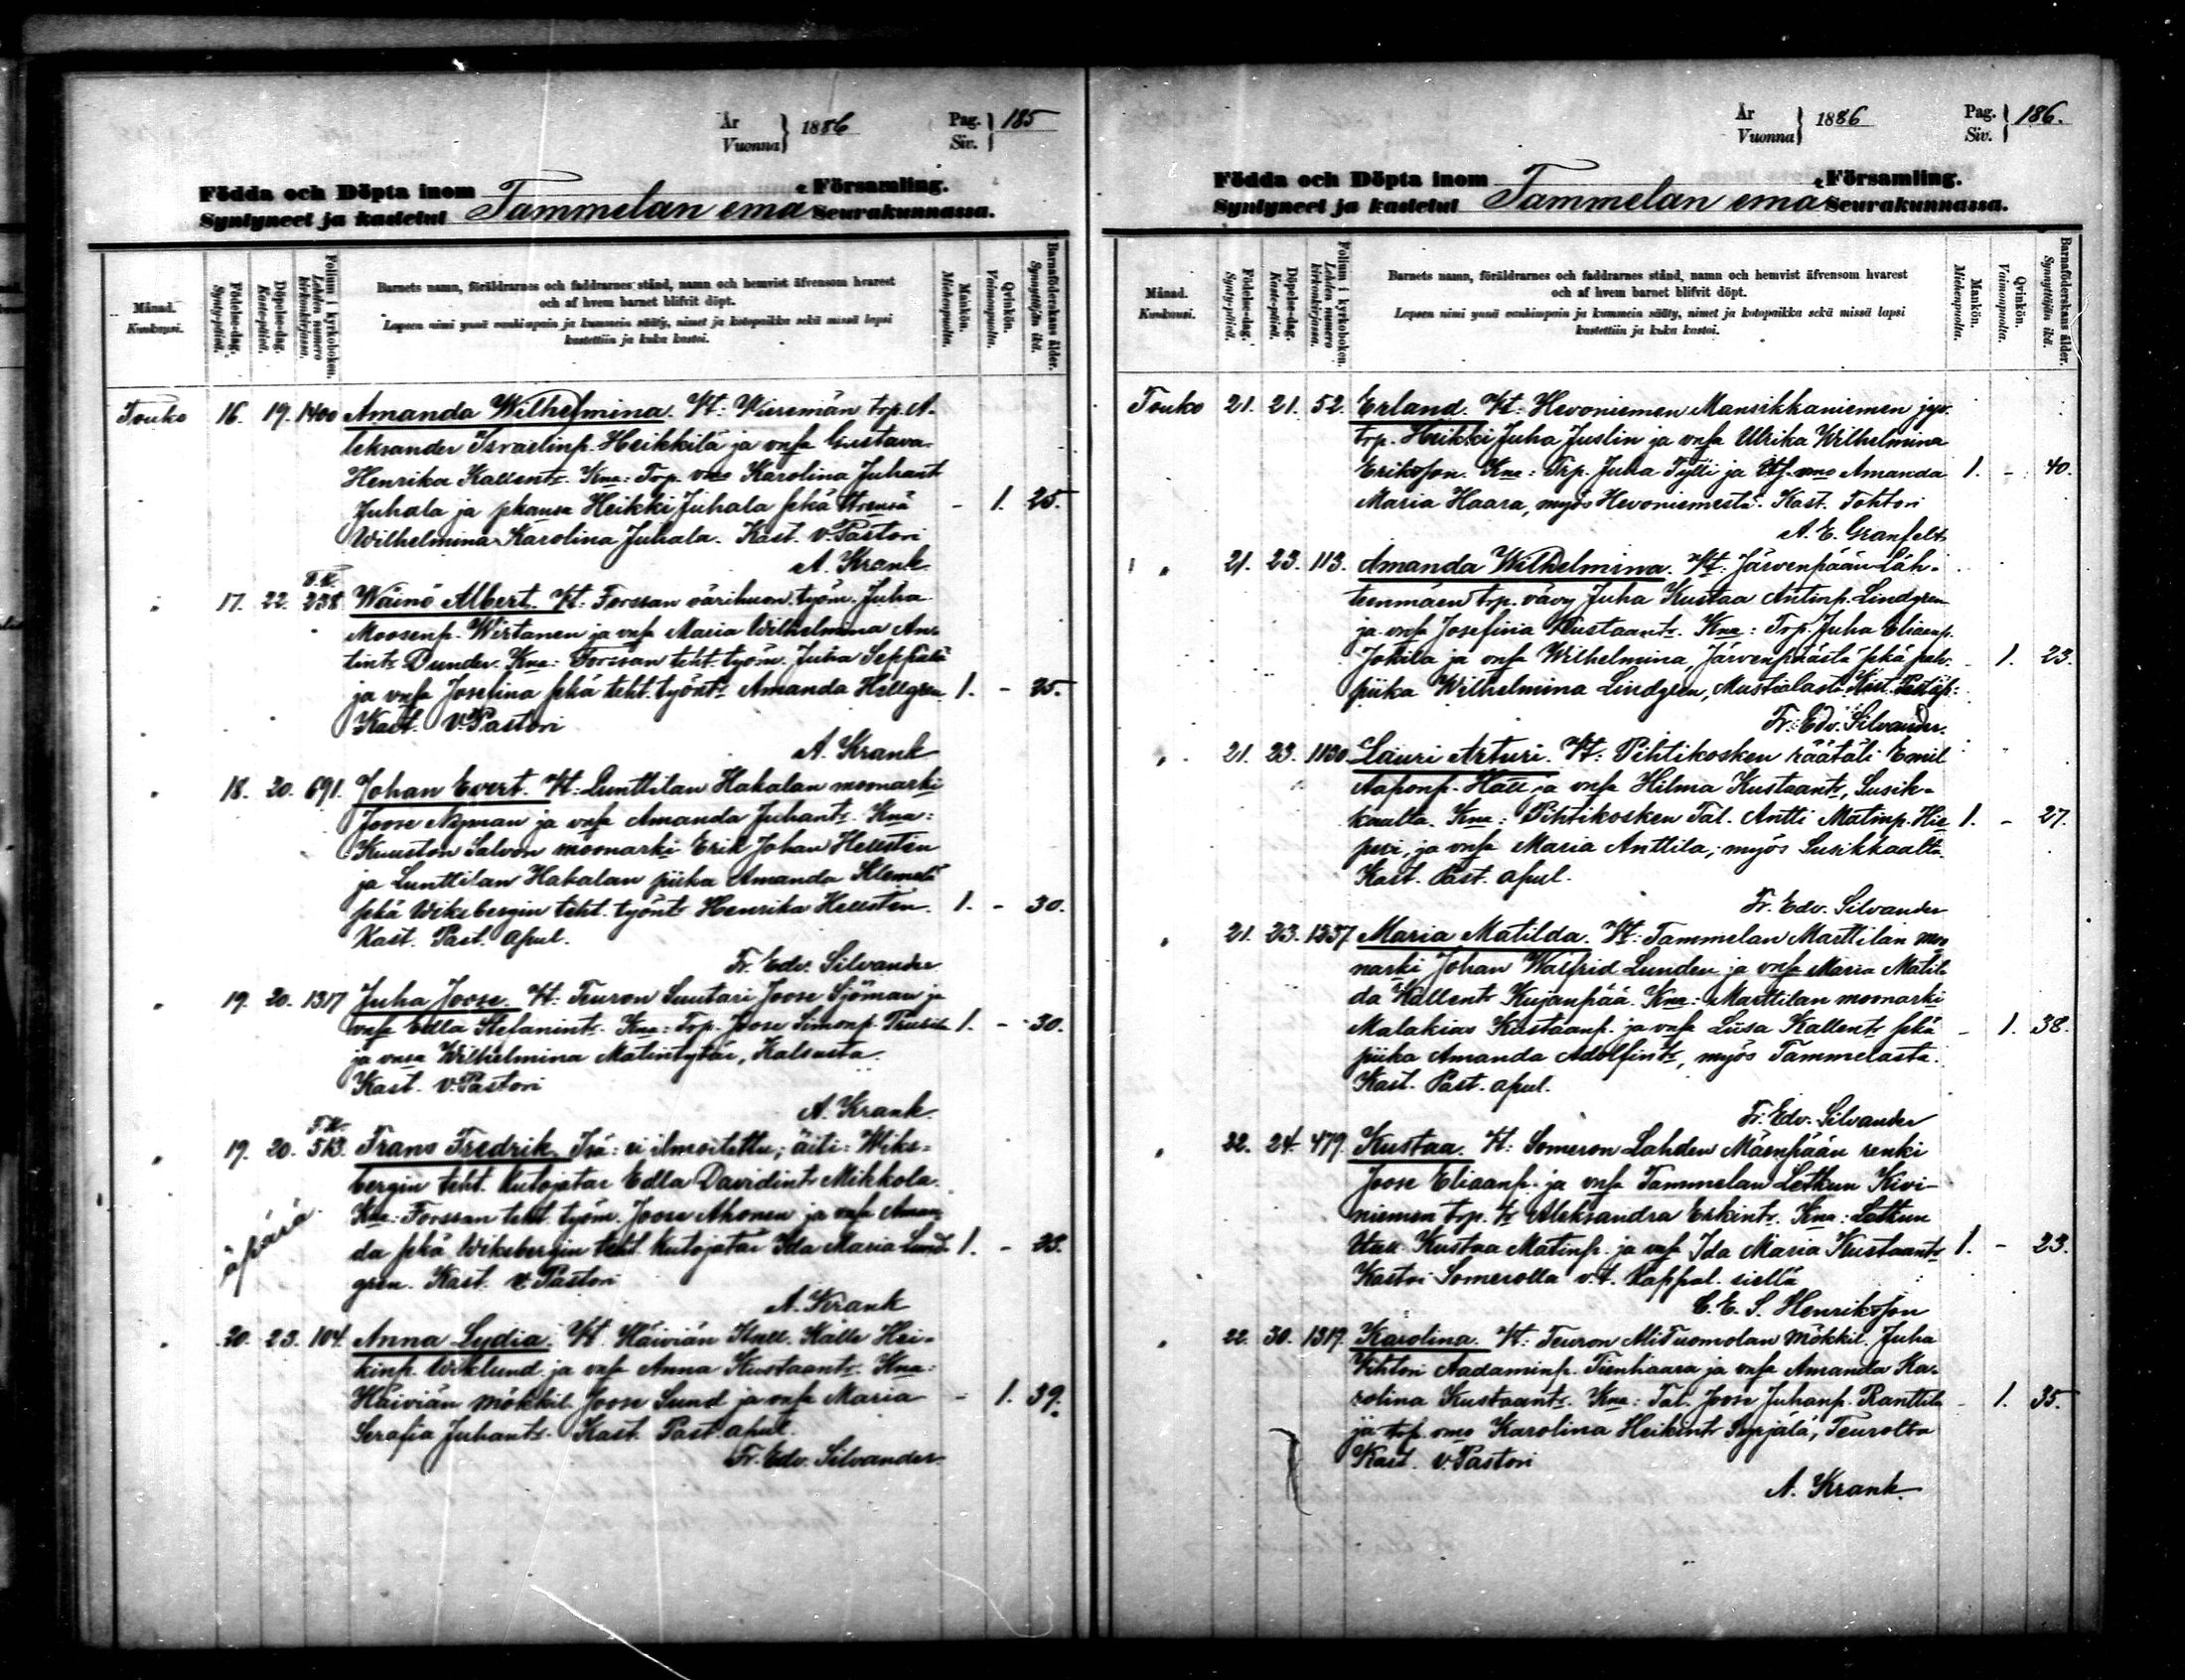 År
Vuonna } 1886
Pag.
Siv. } 185
Födda och Döpta inom
Syntyneet ja kastetut Tammelan emä Församling.
Seurakunnassa.
Månad.
Kuukausi.
Födelse-dag.
Synty-päivä.
Döpelse-dag.
Kaste-päivä.
Folium i kyrkoboken.
Lehden numero kirkonkirjassa.
Barnets namn, föräldrarnes och faddrarnes stånd, namn och hemvist äfvensom hvarest
och af hvem barnet blifvit döpt.
Lapsen nimi ynnä vanhimpain ja kummein sääty, nimet ja kotopaikka sekä missä lapsi
kastettiin ja kuka kastoi.
Mankön.
Miehenpuolta.
Qvinkön.
Vaimonpuolta.
Barnaföderskans ålder.
Synnyttäjän ikä.
Touko 16. 19. 1400 Amanda Wilhelmina. Vt: trp. A-
leksander Israelinp. Heikkilä ja vmsa Gustava
Henrika Kallent. Kna: Trp. vmo Karolina Juhant
Juhala ja Heikki Juhala sekä - 1. 25.
Wilhelmina Karolina Juhala. Kast. v. Pastori
A. Krank
17. 22. 238 Wäinö Albert. Vt: Forssan työm. Juha
Moosenp. Wirtanen ja vmsa Maria Wilhelmina An-
tint. Dunder. Kna: Forssan teht. työm. Juha Seppälä
ja vmsa Josefina sekä teht. työnt. Amanda Hellgren 1. - 35.
Kast. v. Pastori
A. Krank
18. 20. 691. Johan Evert. Vt: Lunttilan Hakalan moonarki
Joose Nyman ja vmsa Amanda Juhant. Kna:
Kuuston Salvon moonarki Erik Johan Hellstén
ja Lunttilan Hakalan piika Amanda Klemelä
sekä Wiksbergin teht. työnt Henrika Hellstén. 1. - 30.
Kast. Past. apul.
Fr. Edv. Silvander
19. 20. 1317 Juha Joose. Vt: Teuron Suutari Joose Sjöman ja
vmsa Edla Stefanint. Kna: Trp. Joose Simonp. 1. - 30.
ja vmsa Wilhelmina Matintytär, Kalsusta.
Kast. v. Pastori
A. Krank.
19. 20. 513. Frans Fredrik. Isä: ei ilmoitettu; äiti: Wiks-
bergin teht. kutojatar Edla Davidint Mikkola.
äpärä
Kna: Forssan teht. työm. Joose Ahonen ja vmsa Aman-
da sekä Wiksbergin teht. kutojatar Ida Maria Lund- 1. - 23.
gren. Kast. v. Pastori
A. Krank
20. 23. 104. Anna Lydia. Vt. Häiviän Kalle Hei-
kinp. Wiklund ja vmsa Anna Kustaant. Kna:
Häiviän mökkil. Joose Sund ja vmsa Maria - 1. 39.
Serafia Juhant. Kast. Past. apul.
Fr. Edv. Silvander
År
Vuonna } 1886
Pag.
Siv. } 186.
Födda och Döpta inom
Syntyneet ja kastetut Tammelan emä Församling.
Seurakunnassa.
Månad.
Kuukausi.
Födelse-dag.
Synty-päivä.
Döpelse-dag.
Kaste-päivä.
Folium i kyrkoboken.
Lehden numero kirkonkirjassa.
Barnets namn, föräldrarnes och faddrarnes stånd, namn och hemvist äfvensom hvarest
och af hvem barnet blifvit döpt.
Lapsen nimi ynnä vanhimpain ja kummein sääty, nimet ja kotopaikka sekä missä lapsi
kastettiin ja kuka kastoi.
Mankön.
Miehenpuolta.
Qvinkön.
Vaimonpuolta.
Barnaföderskans ålder.
Synnyttäjän ikä.
Touko 21. 21. 52. Erland. Vt: Hevoniemen Mansikkaniemen
trp. Heikki Juha Juslin ja vmsa Ulrika Wilhelmina
Eriksson. Kna: Trp. Juha Tylli ja vmo Amanda 1. - 40.
Maria Haara, myös Hevoniemestä. Kast. Tohtori
A. E. Granfelt
" 21. 23. 113. Amanda Wilhelmina. Vt: Järvenpään Läh-
teenmäen trp. vävy Juha Kustaa Antinp. Lindgren
ja vmsa Josefina Kustaant. Kna: Trp. Juha Eliaanp.
Jokila ja vmsa Wilhelmina, Järvenpäästä sekä palv. - 1. 23.
piika Wilhelmina Lindgren, Mustialasta. Kast. Past. ap.
Fr. Edv. Silvander.
" 21. 23. 1130 Lauri Arturi. Vt: Pihtikosken räätäli Emil
Aaponp. Häll ja vmsa Hilma Kustaant, Susik-
kaalta. Kna: Pihtikosken Tal. Antti Matinp. Hie 1. - 27.
peri, ja vmsa Maria Anttila; myös Susikkaalta.
Kast. Past. apul.
Fr. Edv. Silvander
" 21. 23. 1237 Maria Matilda. Vt: Tammelan Marttilan moo
narki Johan Walfrid Lunden ja vmsa Maria Matil-
da Kallent Kujanpää. Kna: Marttilan moonarki
Malakias Kustaanp. ja vmsa Liisa Kallent sekä - 1. 38.
piika Amanda Adolfint, myös Tammelasta.
Kast. Past. apul.
Fr. Edv. Silvander
" 22. 24. 479. Kustaa. Vt: Someron Lahden Mäenpään renki
Joose Eliaanp. ja vmsa Tammelan Letkun Kivi-
niemen trp. tr Aleksandra Erkint. Kna: Letkun
Kustaa Matinp. ja vmsa Ida Maria Kustaant 1. - 23.
Kastoi Somerolla v.t. Kappal. siellä
C. E. S. Henriksson
" 22. 30. 1319. Karolina. Vt: Teuron AliTuomolan mökkil. Juha
Vihtori Aadaminp. Tienhaara ja vmsa Amanda Ka-
rolina Kustaant. Kna: Tal. Joose Juhanp. Ranttila - 1. 35.
ja trp. vmo Karolina Heikint Syrjälä, Teurolta
Kast. v. Pastori
A. Krank.